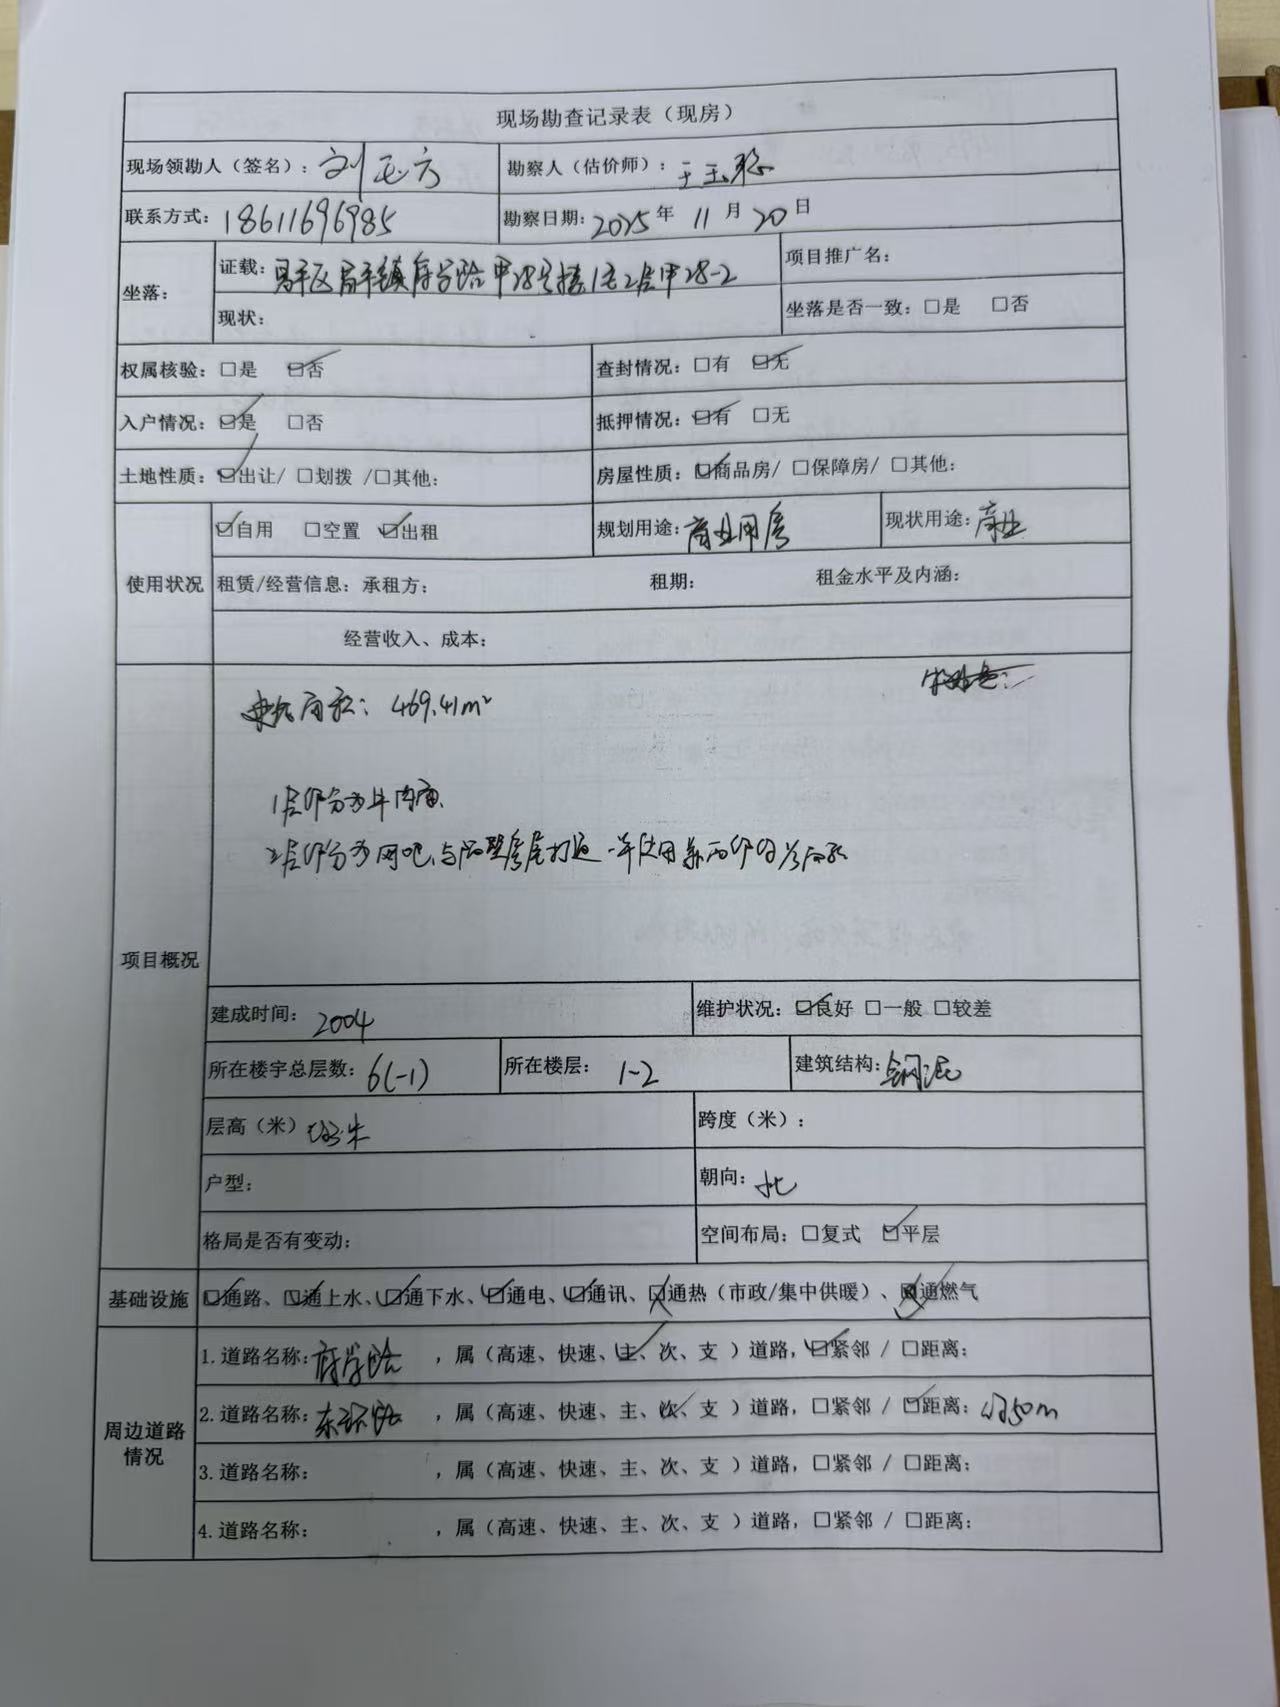 现场勘查记录表（现房）
现场领勘人（签名）：刘正方 勘察人（估价师）：于玉
联系方式：18611696985 勘察日期：2025年 11月 20日
坐落： 证载：昌平区昌平镇府学路甲28号楼1至2层甲28-2 项目推广名：
现状： 坐落是否一致：□是 □否
权属核验：□是 ☑否 查封情况：□有 ☑无
入户情况：☑是 □否 抵押情况：☑有 □无
土地性质：☑出让/ □划拨 /□其他： 房屋性质：☑商品房/ □保障房/ □其他：
使用状况 ☑自用 □空置 ☑出租 规划用途：商业用房 现状用途：商业
租赁/经营信息：承租方： 租期： 租金水平及内涵：
经营收入、成本：
项目概况
面积：469.41m²
1层部分为牛肉面
2层部分为网吧，与隔壁房屋打通
建成时间：2004 维护状况：☑良好 □一般 □较差
所在楼宇总层数：6(-1) 所在楼层：1-2 建筑结构：钢混
层高（米） 跨度（米）：
户型： 朝向：北
格局是否有变动： 空间布局：□复式 ☑平层
基础设施 ☑通路、☑通上水、☑通下水、☑通电、☑通讯、☑通热（市政/集中供暖）、☑通燃气
周边道路情况 1.道路名称：府学路 ，属（高速、快速、主、次、支 ）道路，☑紧邻 / □距离：
2.道路名称：东环路 ，属（高速、快速、主、次、支 ）道路，□紧邻 / ☑距离：约50m
3.道路名称： ，属（高速、快速、主、次、支 ）道路，□紧邻 / □距离：
4.道路名称： ，属（高速、快速、主、次、支 ）道路，□紧邻 / □距离：